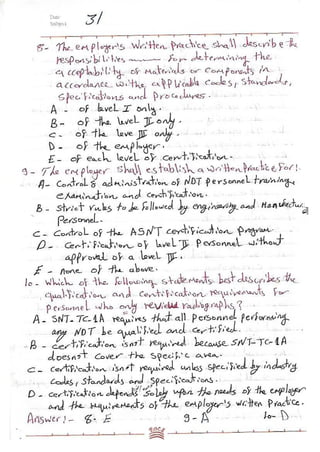 Date
Subject
3/
8- The employer's written practice shall describe the
responsibilities ——— for determining the
acceptability of materials or components in
accordance with applicable codes, standards,
specifications and procedures.
A - of level I only.
B - of the level II only.
C - of the leve III only.
D - of the employer.
E - of each level of certification.
9 - The employer shall establish a written practice for:
A- Control & administration of NDT personnel training,
examination, and certification.
B - Strict rules to be followed by engineering and Manufactur
Personnel.
C - Control of the ASNT certification program.
D - Certification of level II personnel without
approval of a level III.
E - none of the above.
10 - Which of the following statements best describes the
qualification and certification requirements for
personnel who only review radiographs?
A - SNT-TC-1A requires that all personnel performing
any NDT be qualified and certified.
B - certification isn't required because SNT-TC-1A
doesn't cover the specific area.
C - certification isn't required unless specified by industry
codes, standards and specifications.
D - certification depends solely upon the needs of the employer
and the requirements of the employer's written practice.
Answer: - 8- E 9 - A 10- D